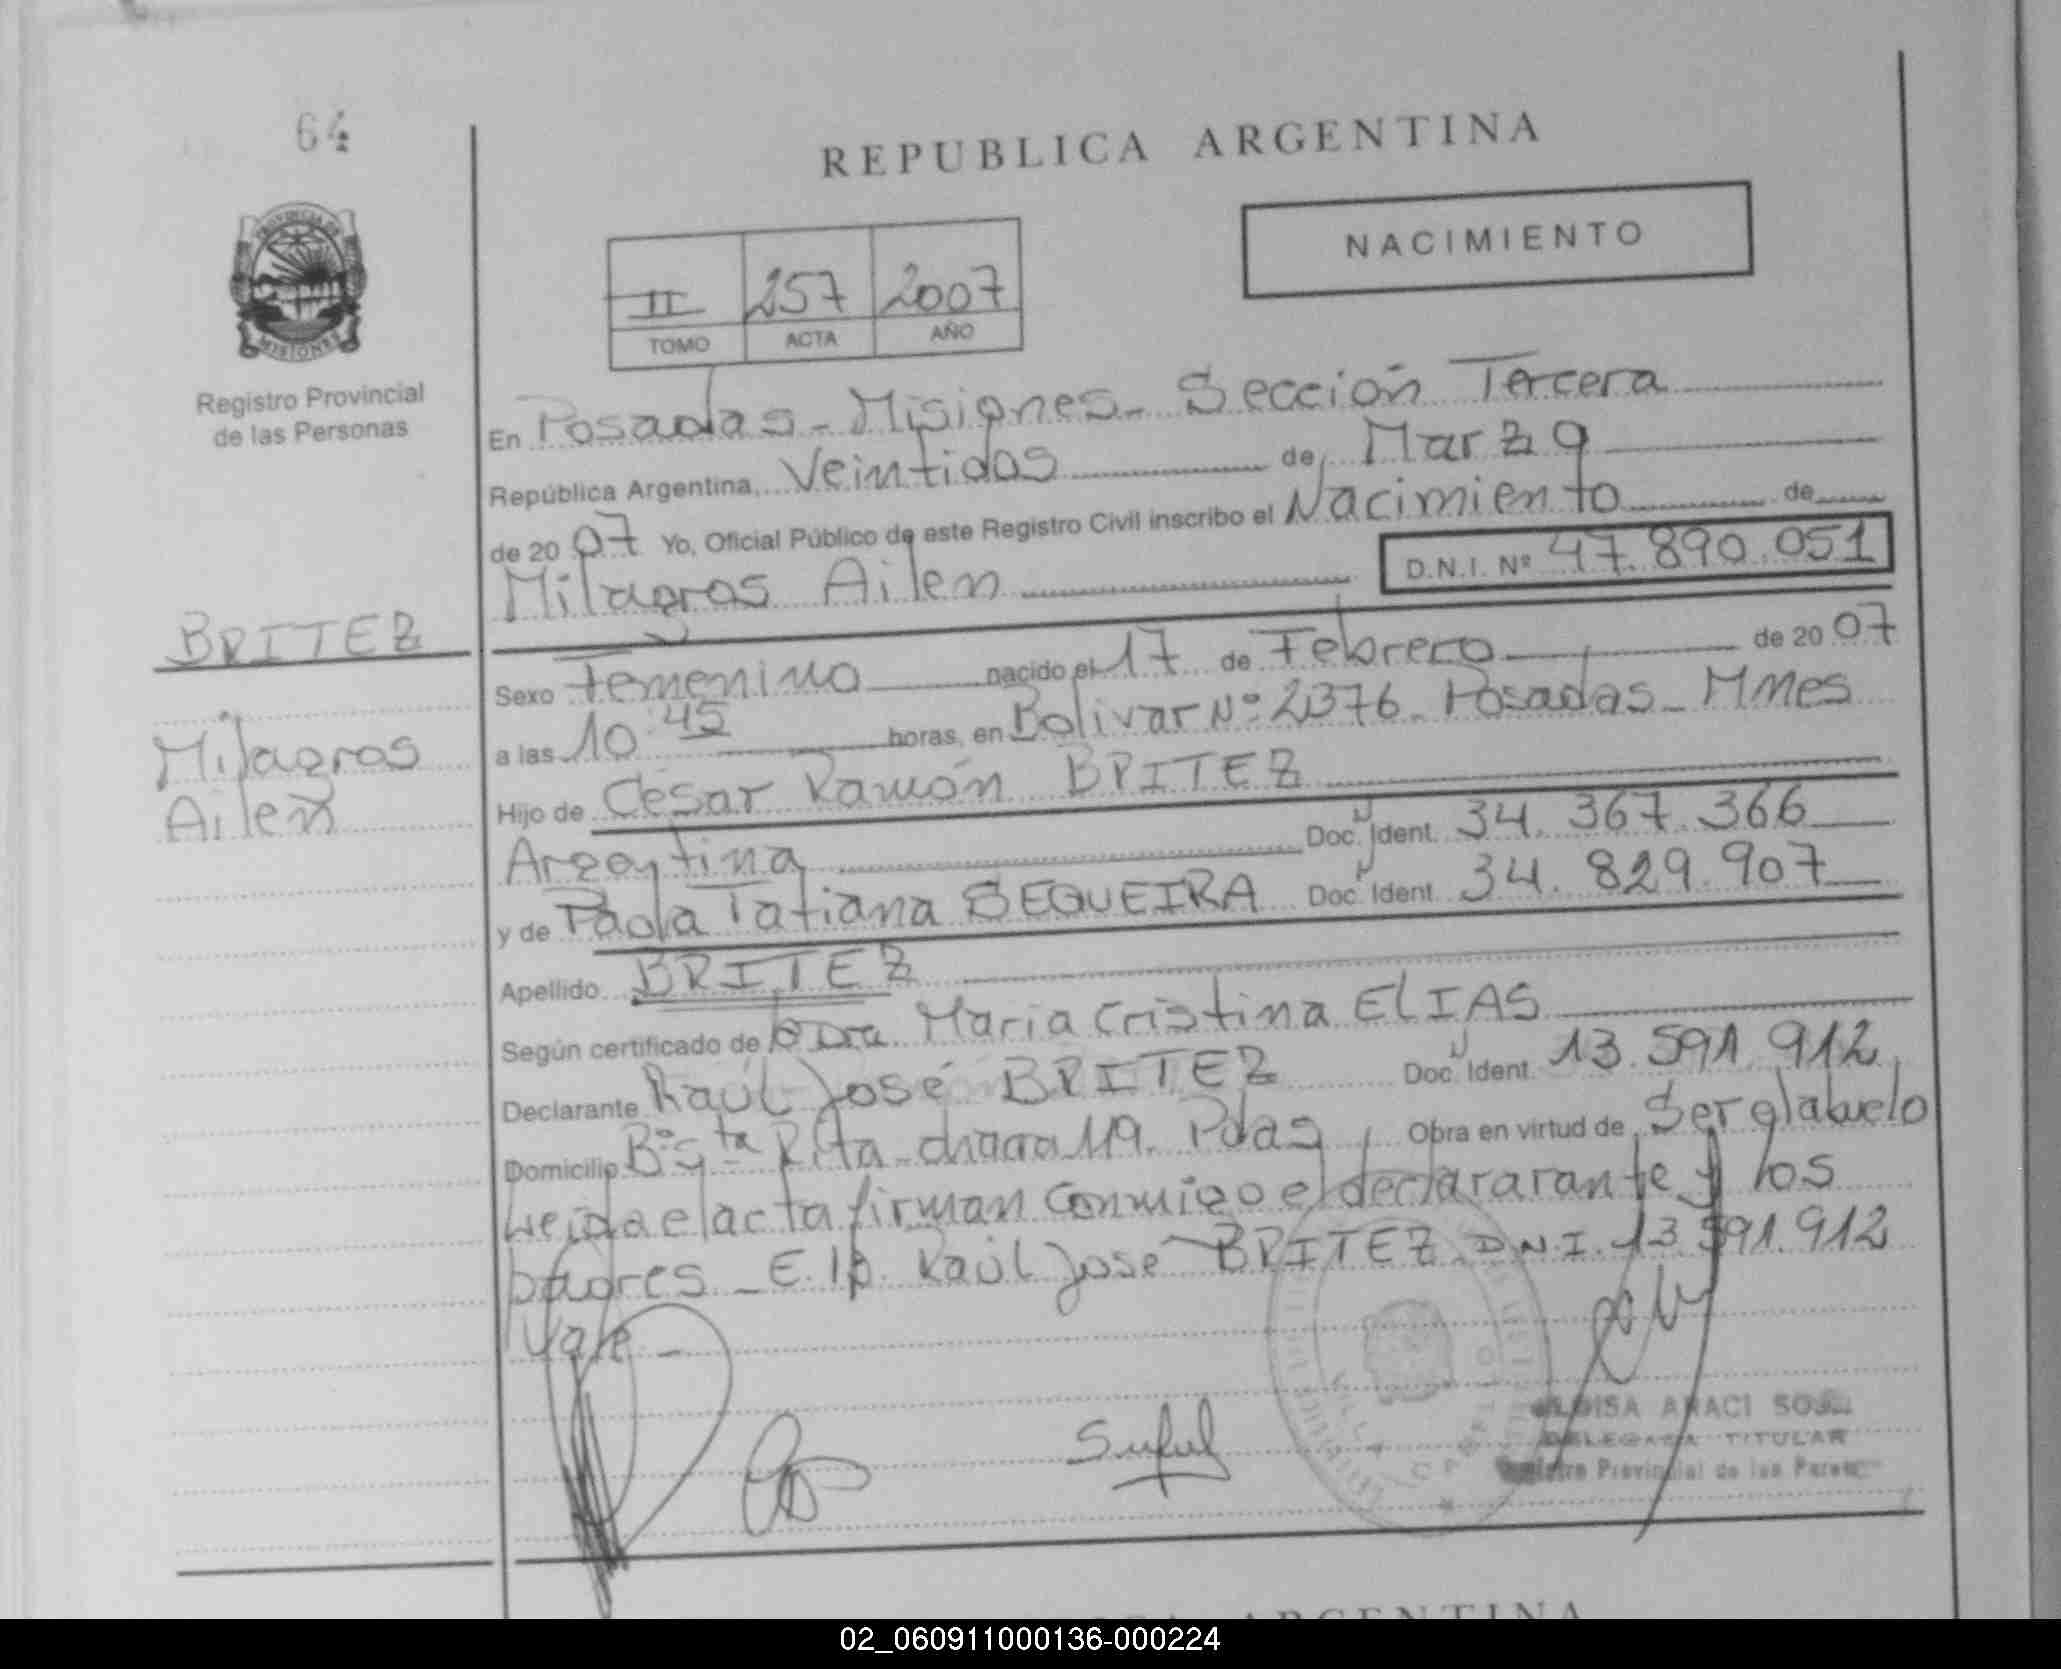 64
REPUBLICA ARGENTINA
PROVINCIA DE
MISIONES
Registro Provincial
de las Personas
NACIMIENTO
II 257 2007
TOMO ACTA AÑO
En Posadas - Misiones - Sección Tercera
República Argentina, Veintidos de Marzo
de 2007 Yo, Oficial Público de este Registro Civil inscribo el Nacimiento de
Milagros Ailen D.N.I. Nº 47.890.051
BRITEZ
Milagros
Ailen
Sexo Femenino nacido el 17 de Febrero de 2007
a las 10:45 horas, en Bolivar Nº 2376 - Posadas - Mnes
Hijo de César Ramón BRITEZ
Argentina Doc. Ident. 34.367.366
y de Paola Tatiana SEQUEIRA Doc. Ident. 34.829.907
Apellido BRITEZ
Según certificado de Dra. Maria Cristina ELIAS
Declarante Raúl José BRITEZ Doc. Ident. 13.591.912
Domicilio Bº Sta Rita - chacra 119. Pdas Obra en virtud de Ser el abuelo
Leida el acta firman conmigo el declararante y los
padres - E.l. Raúl José BRITEZ D.N.I. 13.591.912
Vale -
ARACI
DELEGADA TITULAR
Provincial de las
ARGENTINA
02_060911000136-000224